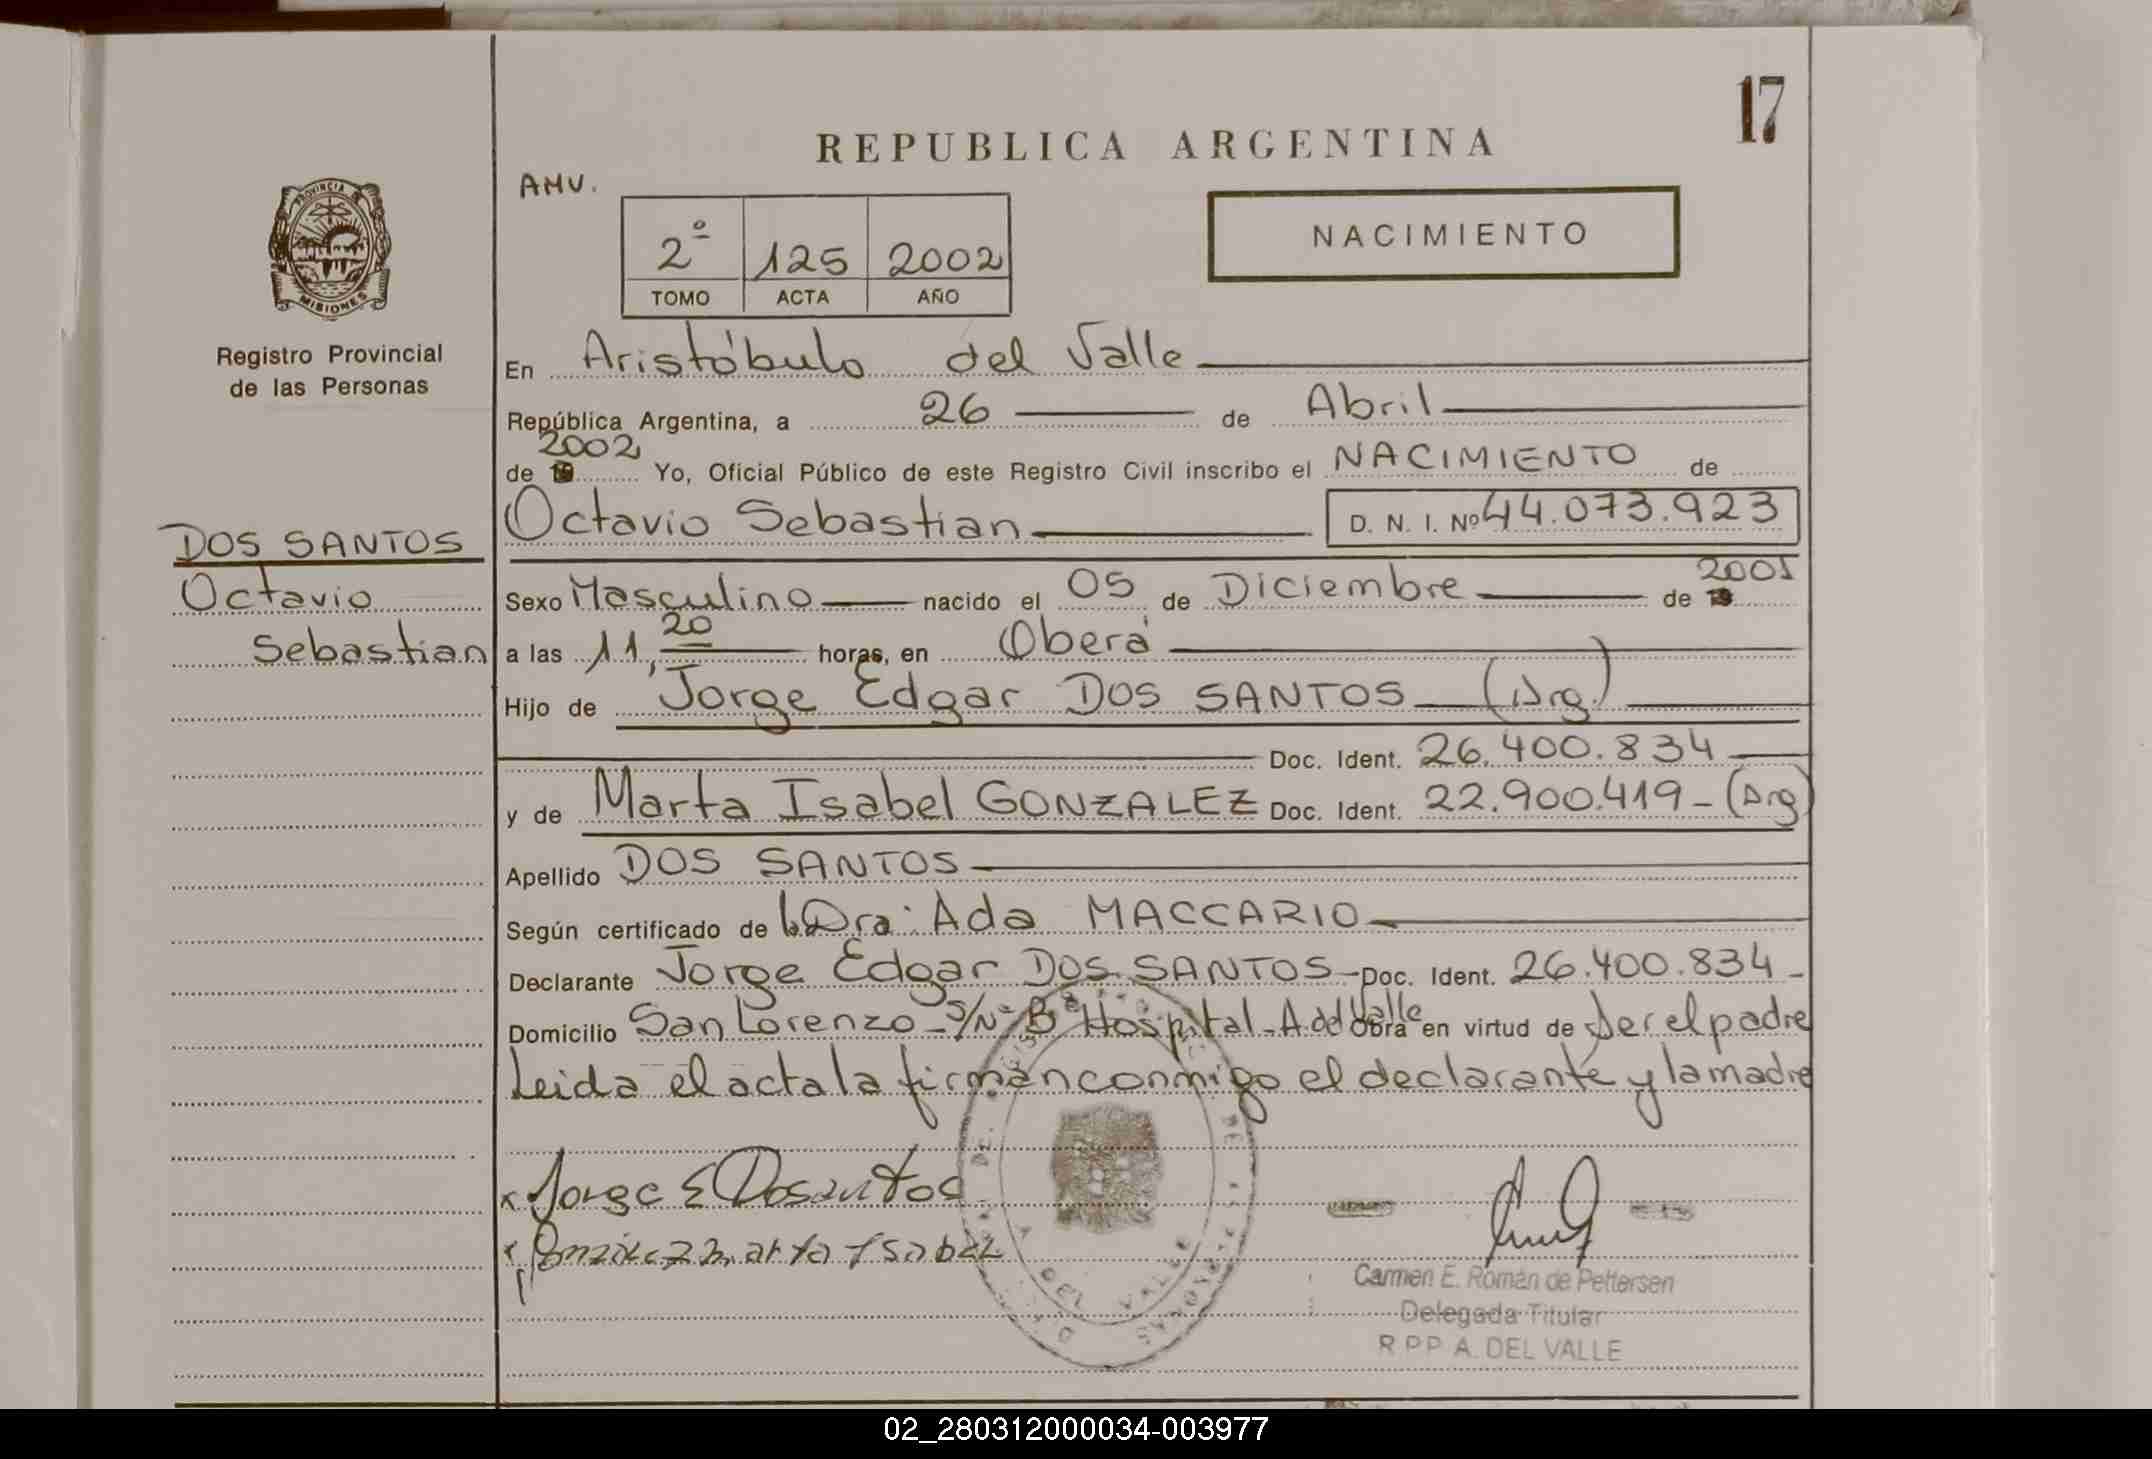 17
REPUBLICA ARGENTINA
AMV.
2º 125 2002
TOMO ACTA AÑO
NACIMIENTO
PROVINCIA
MISIONES
Registro Provincial
de las Personas
DOS SANTOS
Octavio
Sebastian
En Aristóbulo del Valle
República Argentina, a 26 de Abril
2002
de 19 Yo, Oficial Público de este Registro Civil inscribo el NACIMIENTO de
Octavio Sebastian D. N. I. Nº 44.073.923
Sexo Masculino nacido el 05 de Diciembre de 19 2001
a las 11,20 horas, en Oberá
Hijo de Jorge Edgar DOS SANTOS (Arg.)
Doc. Ident. 26.400.834
y de Marta Isabel GONZALEZ Doc. Ident. 22.900.419 - (Arg)
Apellido DOS SANTOS
Según certificado de la Dra. Ada MACCARIO
Declarante Jorge Edgar DOS SANTOS - Doc. Ident. 26.400.834 -
Domicilio San Lorenzo - S/Nº Bº Hospital - A. del Valle Obra en virtud de Ser el padre
Leida el acta la firman conmigo el declarante y la madre
x Jorge E Dosantos
x Gonzalez Marta Isabel
DEL VALLE
Carmen E. Román de Pettersen
Delegada Titular
R P P A. DEL VALLE
02_280312000034-003977